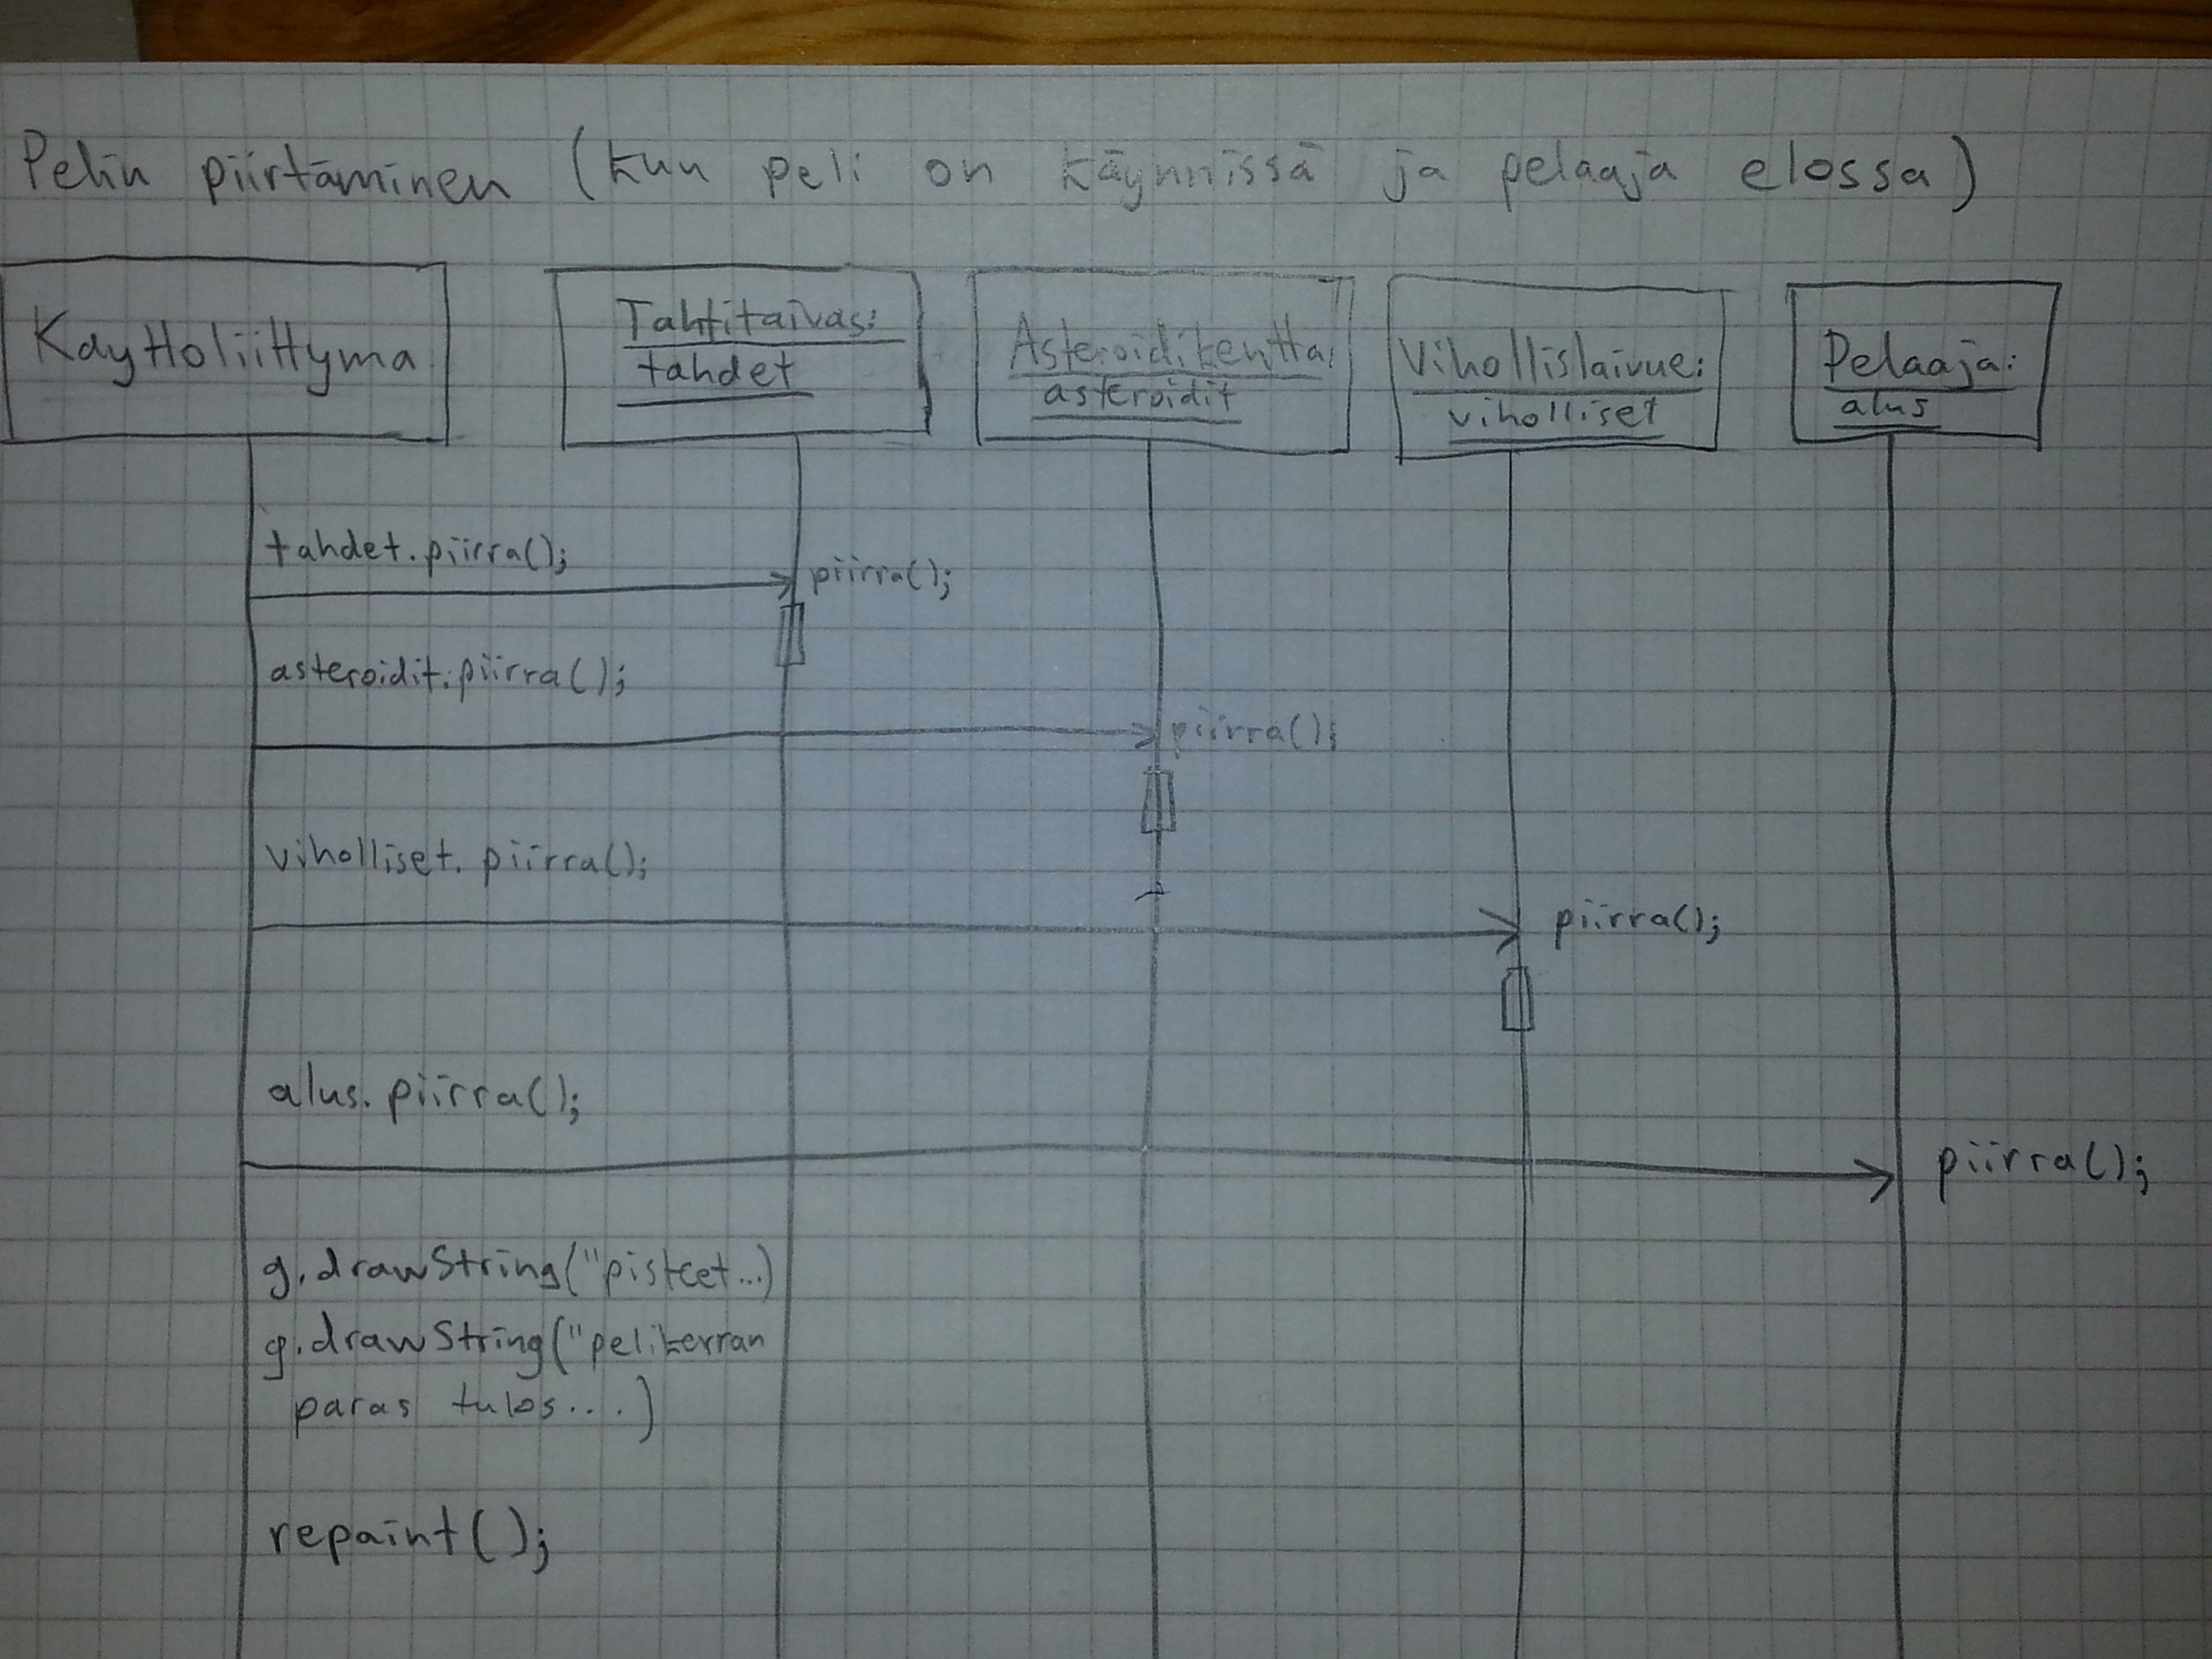 Pelin piirtäminen (kun peli on käynnissä ja pelaaja elossa)
Kayttoliittyma
Tahtitaivas:
tahdet
Asteroidikentta:
asteroidit
Vihollislaivue:
viholliset
Pelaaja:
alus
tahdet.piirra();
piirra();
asteroidit.piirra();
piirra();
viholliset.piirra();
piirra();
alus.piirra();
piirra();
g.drawString("pisteet...)
g.drawString("pelikerran
paras tulos....)
repaint();